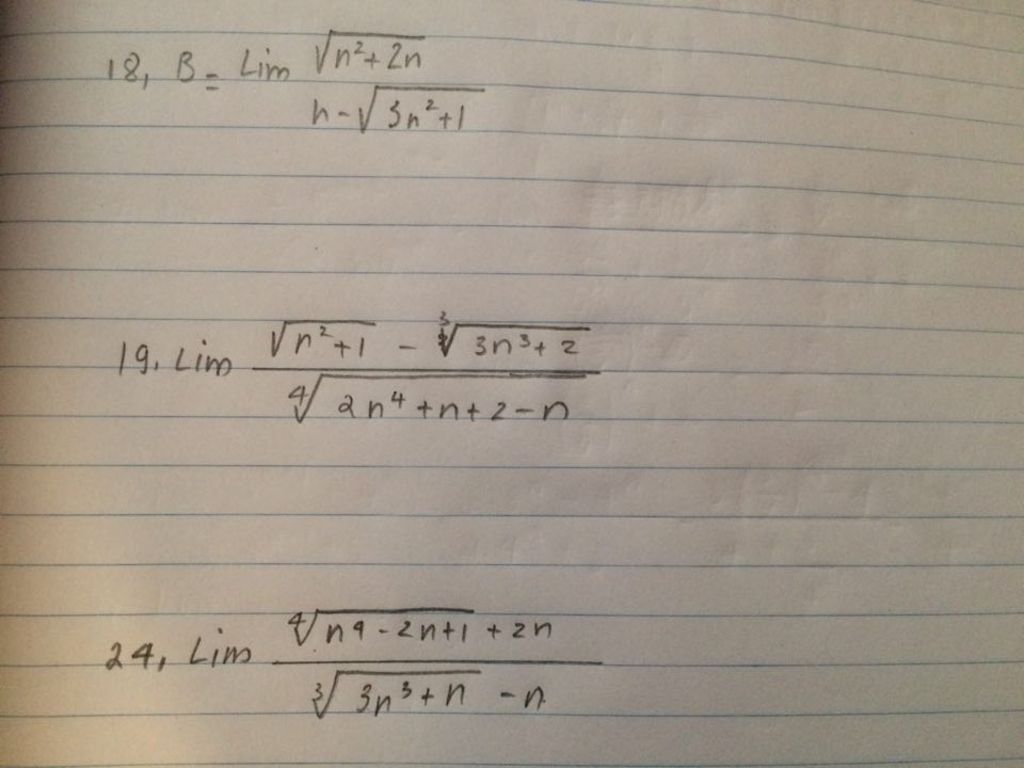 18, B = Lim √(n²+2n)
n-√(3n²+1)
19. Lim √(n²+1) - ³√(3n³+2)
⁴√(2n⁴+n+2-n)
24, Lim ⁴√(n4-2n+1) + 2n
³√(3n³+n) - n